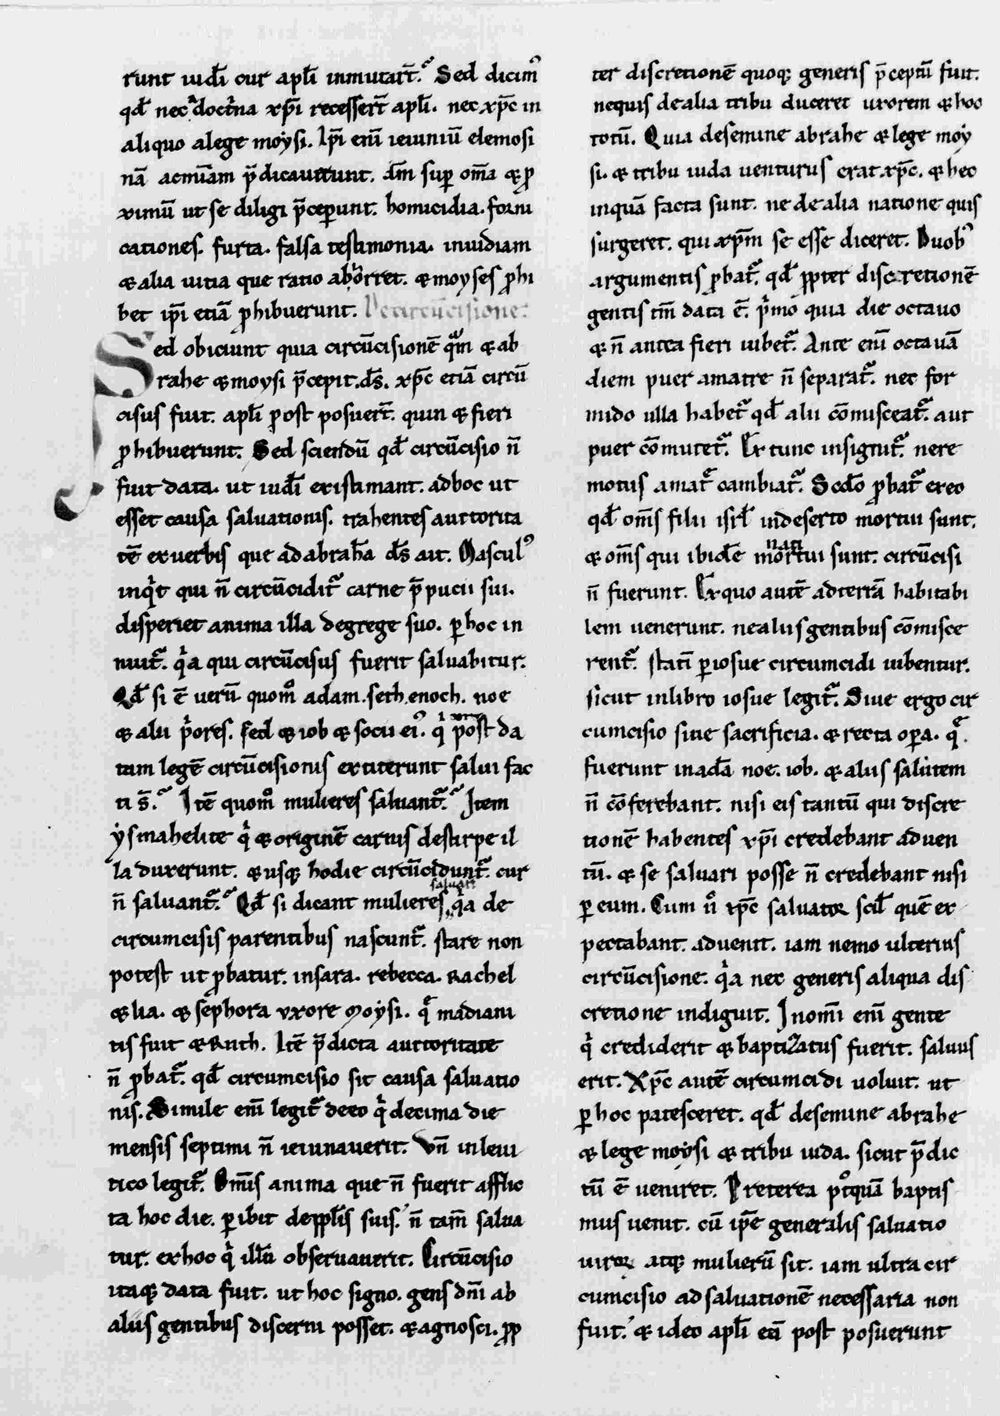 runt iudi͞ cur apl͞i inmutart͞. Sed dicim᾽
qd͞ nec doct͛na xp͞i recessert͞ apl͞i. nec xp͞c in
aliquo alege moẏsi. Ip͞i eni͞ ieiuniu͞ elemosi
na͞ acmi͞am p͞dicauerunt. dm͞ sup om͞a & p
ximu͞ ut se diligi p͞ceperunt. homicidia. forni
cationes. furta. falsa testimonia. inuidiam
& alia uitia que ratio abhorret. & moyses phi
bet ip͞i etia͞ phibuerunt. De circu͞cisione.
Sed obiciunt quia circu͞cisione͞ qua͞m & ab
rahe & moysi p͞cepit. ds͞. xp͞c etia͞ circu͞
cisus fuit. apl͞i post posuert͞. quin & fieri
phibuerunt. Sed sciendu͞ qd͞ circu͞cisio n͞
fuit data. ut iudi͞ existimant. adhoc ut
esset causa saluationis. trahentes auctorita
te͞ exuerbis que ad abraha͞ ds͞ ait. Mascul᾽
inqͥt qui n͞ circu͞cidit͛ carne p͞pucii sui.
disperiet anima illa degrege suo. p hoc in
nuit͛. qͥa qui circu͞cisus fuerit saluabitur.
Qd͞ si e͞ ueru͞ quom͞o adam. seth. enoch. noe
& alii pͥores. sed & iob & socii ei᾽. qͥ post da
tam lege͞ circu͞cisionis extiterunt salui fac
ti s͞. Ite͞ quom͞o mulieres saluant͛. Item
ẏsmahelite qͥ & origine͞ carnis destirpe il
la duxerunt. & usq; hodie circu͞cidunt͛. cur
n͞ saluant͛. Qd͞ si dicant mulieres saluari qͥa de
circumcisis parentibus nascunt͛. stare non
potest ut pbatur. insara. rebecca. Rachel
& lia. & sephora uxore moẏsi. q͛ madiani
tis fuit & Ruth. Ite͞ p͞dicta auctoritate
n͞ pbat͛. qd͞ circumcisio sit causa saluatio
nis. Simile eni͞ legit͛ deeo qͥ decima die
mensis septimi n͞ ieiunauerit. Vn͞ inleui
tico legit͛. Om͞is anima que n͞ fuerit afflic
ta hoc die. peribit depplis͞ suis. n͞ tam͞ salua
tur. exhoc qͥ illu͞ obseruauerit. Circu͞cisio
itaq; data fuit. ut hoc signo. gens dn͞i ab
aliis gentibus discerni posset. & agnosci. pp
ter discretione͞ quoq; generis p͞ceptu͞ fuit.
nequis dealia tribu duceret uxorem & hoc
totu͞. Quia desemine abrahe & lege moẏ
si. & tribu iuda uenturus erat xp͞c. & hec
inqua͞ facta sunt. ne dealia natione quis
surgeret. qui xp͞m se esse diceret. Duob᾽
argumentis pbat͛. qd͞ ppter discretione͞
gentis tm͞ data e͞. pͥmo quia die octauo
& n͞ antea fieri iubet͛. Ante eni͞ octaua͞
diem puer amatre n͞ separat͛. nec for
mido ulla habet͛ qd͞ alii co͞misceat͛. aut
puer co͞mutet͛. Ex tunc insignit͛. nere
motus amat͛ cambiat͛. Sc͞do pbat͛ exeo
qd͞ om͞s filii isrl͞ indeserto mortui sunt.
& om͞s qui ibide͞ nati mortui sunt. circu͞cisi
n͞ fuerunt. Exquo aute͞ adterra͞ habitabi
lem uenerunt. nealiis gentibus co͞misce
rent͛. stati͞ periosue circumcidi iubentur.
sicut inlibro iosue legit͛. Siue ergo cir
cumcisio siue sacrificia. & recta opa. q͛
fuerunt inada͞ noe. iob. & aliis salutem
n͞ co͞ferebant. nisi eis tantu͞ qui discre
tione͞ habentes xp͞i credebant aduen
tu͞. & se saluari posse n͞ credebant nisi
p eum. Cum u͞o xp͞c saluator scil͞ que͞ ex
pectabant. aduenit. iam nemo ulterius
circu͞cisione. qͥa nec generis aliqua dis
cretione indiguit. In om͞i eni͞ gente
qͥ crediderit & baptizatus fuerit. saluus
erit. Xp͞c aute͞ circumcidi uoluit. ut
p hoc patesceret. qd͞ desemine abrahe
& lege moẏsi & tribu iuda. sicut p͞dic
tu͞ e͞ ueniret. Preterea ptͦqua͞ baptis
mus uenit. cu͞ ip͞e generalis saluatio
uiroꝝ atq; mulieru͞ sit. iam ultra cir
cumcisio ad saluatione͞ necessaria non
fuit. & ideo apl͞i ea͞ post posuerunt